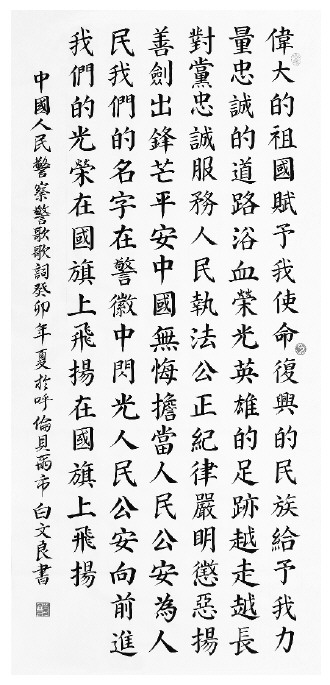 偉大的祖國賦予我使命復興的民族給予我力
量忠誠的道路浴血榮光英雄的足跡越走越長
對黨忠誠服務人民執法公正紀律嚴明懲惡揚
善劍出鋒芒平安中國無悔擔當人民公安為人
民我們的名字在警徽中閃光人民公安向前進
我們的光榮在國旗上飛揚在國旗上飛揚
中國人民警察警歌歌詞癸卯年夏於呼倫貝爾市白文良書